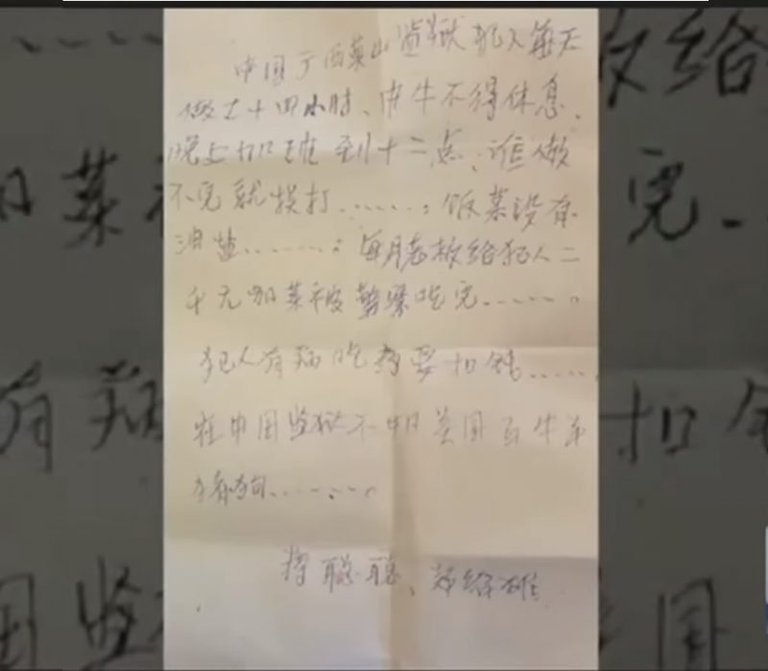 中国广西英山监狱犯人每天
做工十四小时、中午不得休息、
晚上加班到十二点、谁做
不完就挨打......，饭菜没有
油盐.......；每月老板给犯人二
千元加菜被警察吃完......。
犯人有病吃药要扣钱......
在中国监狱不如美国牛羊
猪狗........
聪聪、